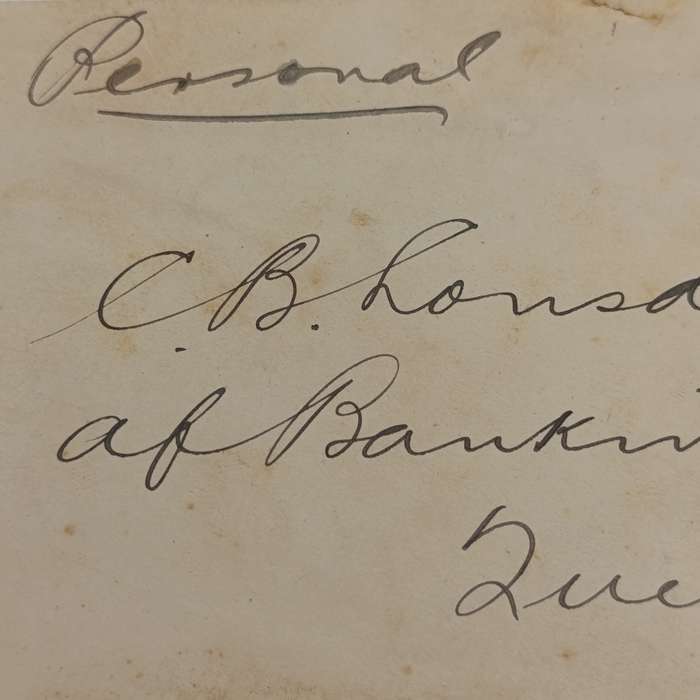 Personal
C. B. Lonsd
af Bankin
Que